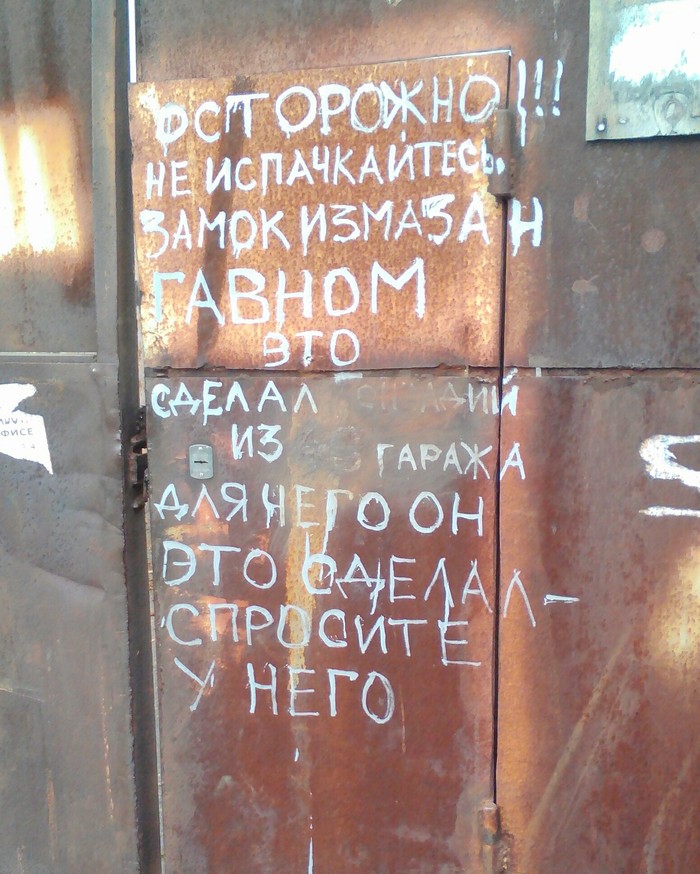 ОСТОРОЖНО!!!
НЕ ИСПАЧКАЙТЕСЬ.
ЗАМОК ИЗМАЗАН
ГАВНОМ
ЭТО
СДЕЛАЛ
ИЗ ГАРАЖА
ДЛЯ НЕГО ОН
ЭТО СДЕЛАЛ-
СПРОСИТЕ
У НЕГО
ФИСЕ